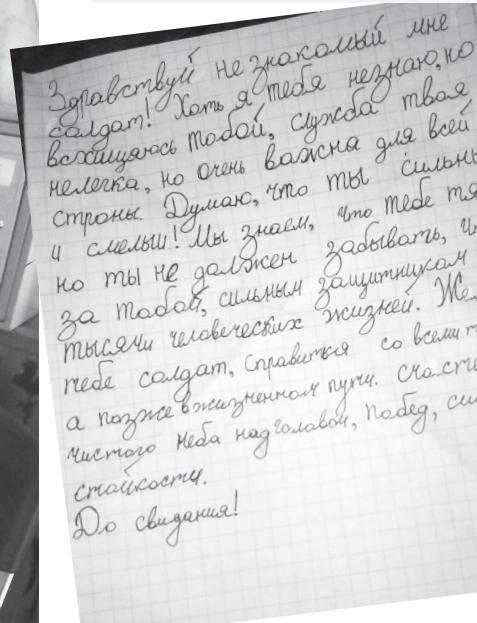 Здравствуй не знакомый мне
солдат! Хоть я тебя незнаю, но
восхищаюсь тобой, служба твоя
нелегка, но очень важна для всей
страны. Думаю, что ты сильны
и смелы! Мы знаем, что тебе тя
но ты не должен забывать, ч
за тобой, сильным защитником
тысячи человеческих жизней. Же
тебе солдат, справиться со всеми т
а позже в жизненном пути. Счасть
чистого неба над головой, побед, си
стойкости.
До свидания!